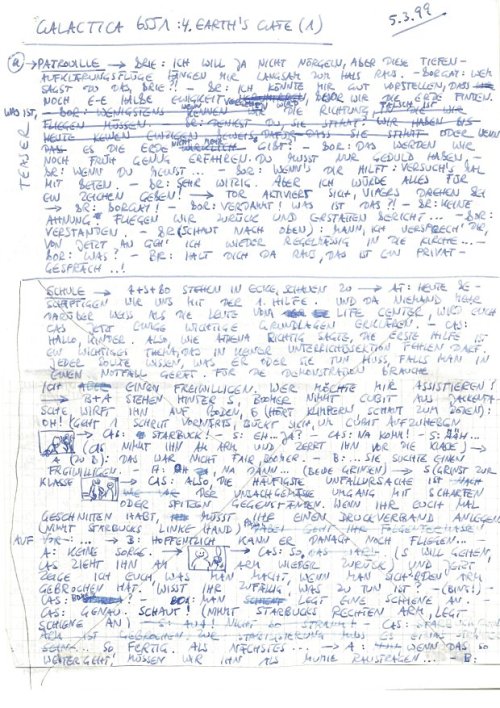 GALACTICA 6SJ1 : 4. EARTH'S GATE (1)
5.3.99
(a) → PATROUILLE → BRIE: ICH WILL JA NICHT NÖRGELN, ABER DIESE TIEFEN-
AUFKLÄRUNGSFLÜGE HÄNGEN MIR LANGSAM ZUM HALS RAUS. - BORGAT: WEM
SAGST DU DAS, BRIE?! - BR: ICH KÖNNTE MIR GUT VORSTELLEN, DASS
NOCH E-E HALBE EWIGKEIT BEVOR WIR DIE ERDE FINDEN.
WAS IST, - BOR: WENIGSTENS KENNEN WIR DIE RICHTUNG, IN DIE WIR
FLIEGEN MÜSSEN. - BR: DENKST DU, SIE STIMMT? WIR HABEN BIS
HEUTE KEINEN EINZIGEN BEWEIS DAFÜR, DASS SIE STIMMT ODER WENN
ES DIE ERDE NICHT MEHR GIBT? - BOR: DAS WERDEN WIR
NOCH FRÜH GENUG ERFAHREN. DU MUSST NUR GEDULD HABEN. -
BR: WENN DU MEINST... - BOR: WENN'S DIR HILFT: VERSUCH'S MAL
MIT BETEN. - BR: SEHR WITZIG. ABER ICH WÜRDE ALLES FÜR
EIN ZEICHEN GEBEN! → TOR AKTIVIERT SICH, VIPERS DREHEN BEI
→ BR: BORGAT! - BOR: VERDAMMT! WAS IST DAS?! - BR: KEINE
AHNUNG. FLIEGEN WIR ZURÜCK UND ERSTATTEN BERICHT... - BOR:
VERSTANDEN. - BR (SCHAUT NACH OBEN): MANN, ICH VERSPRECH' DIR,
VON JETZT AN GEH' ICH WIEDER REGELMÄSSIG IN DIE KIRCHE... -
BOR: WAS? - BR: HALT DICH DA RAUS, DAS IST EIN PRIVAT-
GESPRÄCH..!
TEASER
SCHULE → A+S+BO STEHEN IN ECKE, SCHAUEN ZU → AT: HEUTE BE-
SCHÄFTIGEN WIR UNS MIT DER 1. HILFE. UND DA NIEMAND MEHR
DARÜBER WEISS ALS DIE LEUTE VOM LIFE CENTER, WIRD EUCH
CAS JETZT EINIGE WICHTIGE GRUNDLAGEN ERKLÄREN. - CAS:
HALLO, KINDER. ALSO, WIE ATHENA RICHTIG SAGTE, DIE ERSTE HILFE IST
EIN WICHTIGES THEMA, DAS IN KEINER UNTERRICHTSEKTION FEHLEN DARF.
JEDER SOLLTE WISSEN, WAS ER ODER SIE TUN MUSS, FALLS MAN IN
EINEN NOTFALL GERÄT. FÜR DIE DEMONSTRATION BRAUCHE
ICH EINEN FREIWILLIGEN. WER MÖCHTE MIR ASSISTIEREN?
→ B+A STEHEN HINTER S, BOOMER NIMMT CUBIT AUS JACKENTA-
SCHE WIRFT IHN AUF BODEN, S (HÖRT KLIMPERN SCHAUT ZUM BODEN):
OH! (GEHT 1 SCHRITT VORWÄRTS, BÜCKT SICH, UM CUBIT AUFZUHEBEN
CAS: STARBUCK! - S: EH... JA? - CAS: NA KOMM! - S: ÄÄH...
(CAS NIMMT IHN AM ARM UND ZERRT IHN VOR DIE KLASSE) →
A (ZU B): DAS WAR NICHT FAIR BOOMER. - B: ... SIE SUCHTE EINEN
FREIWILLIGEN. - A: OH, NA DANN... (BEIDE GRINSEN) → S (GRINST ZUR
KLASSE CAS: ALSO, DIE HÄUFIGSTE UNFALLURSACHE IST
DER UNSACHGEMÄSSE UMGANG MIT SCHARFEN
ODER SPITZEN GEGENSTÄNDEN. WENN IHR EUCH MAL
GESCHNITTEN HABT, MÜSST IHR EINEN DRUCKVERBAND ANLEGEN
(NIMMT STARBUCKS LINKE HAND)
AUF → B: HOFFENTLICH KANN ER DANACH NOCH FLIEGEN... -
A: KEINE SORGE. → CAS: SO, (S WILL GEHEN,
CAS ZIEHT IHN AM ARM WIEDER ZURÜCK) UND JETZT
ZEIGE ICH EUCH, WAS MAN MACHT, WENN MAN SICH DEN ARM
GEBROCHEN HAT. (WISST IHR ZUFÄLLIG WAS ZU TUN IST? -
CAS: - MAN LEGT EINE SCHIENE AN.
CAS: GENAU. SCHAUT! (NIMMT STARBUCKS RECHTEN ARM, LEGT
SCHIENE AN) - S: NICHT SO STRAMM! - CAS:
ARM IST GEBROCHEN, ZUR STABILISIERUNG MUSS ES
SEIN... SO FERTIG. ALS NÄCHSTES... → A: WENN DAS SO
WEITERGEHT, MÜSSEN WIR IHN ALS MUMIE RAUSTRAGEN... B: